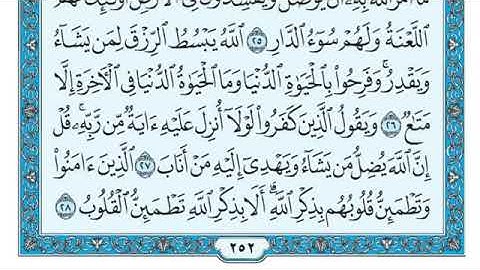 مَآ أَمَرَ ٱللَّهُ بِهِۦٓ أَن يُوصَلَ وَيُفْسِدُونَ فِى ٱلْأَرْضِ أُو۟لَٰٓئِكَ لَهُمُ
ٱللَّعْنَةُ وَلَهُمْ سُوٓءُ ٱلدَّارِ ۝٢٥ ٱللَّهُ يَبْسُطُ ٱلرِّزْقَ لِمَن يَشَآءُ
وَيَقْدِرُ ۚ وَفَرِحُوا۟ بِٱلْحَيَوٰةِ ٱلدُّنْيَا وَمَا ٱلْحَيَوٰةُ ٱلدُّنْيَا فِى ٱلْـَٔاخِرَةِ إِلَّا
مَتَٰعٌ ۝٢٦ وَيَقُولُ ٱلَّذِينَ كَفَرُوا۟ لَوْلَآ أُنزِلَ عَلَيْهِ ءَايَةٌ مِّن رَّبِّهِۦ ۗ قُلْ
إِنَّ ٱللَّهَ يُضِلُّ مَن يَشَآءُ وَيَهْدِىٓ إِلَيْهِ مَنْ أَنَابَ ۝٢٧ ٱلَّذِينَ ءَامَنُوا۟
وَتَطْمَئِنُّ قُلُوبُهُم بِذِكْرِ ٱللَّهِ ۗ أَلَا بِذِكْرِ ٱللَّهِ تَطْمَئِنُّ ٱلْقُلُوبُ ۝٢٨
٢٥٢